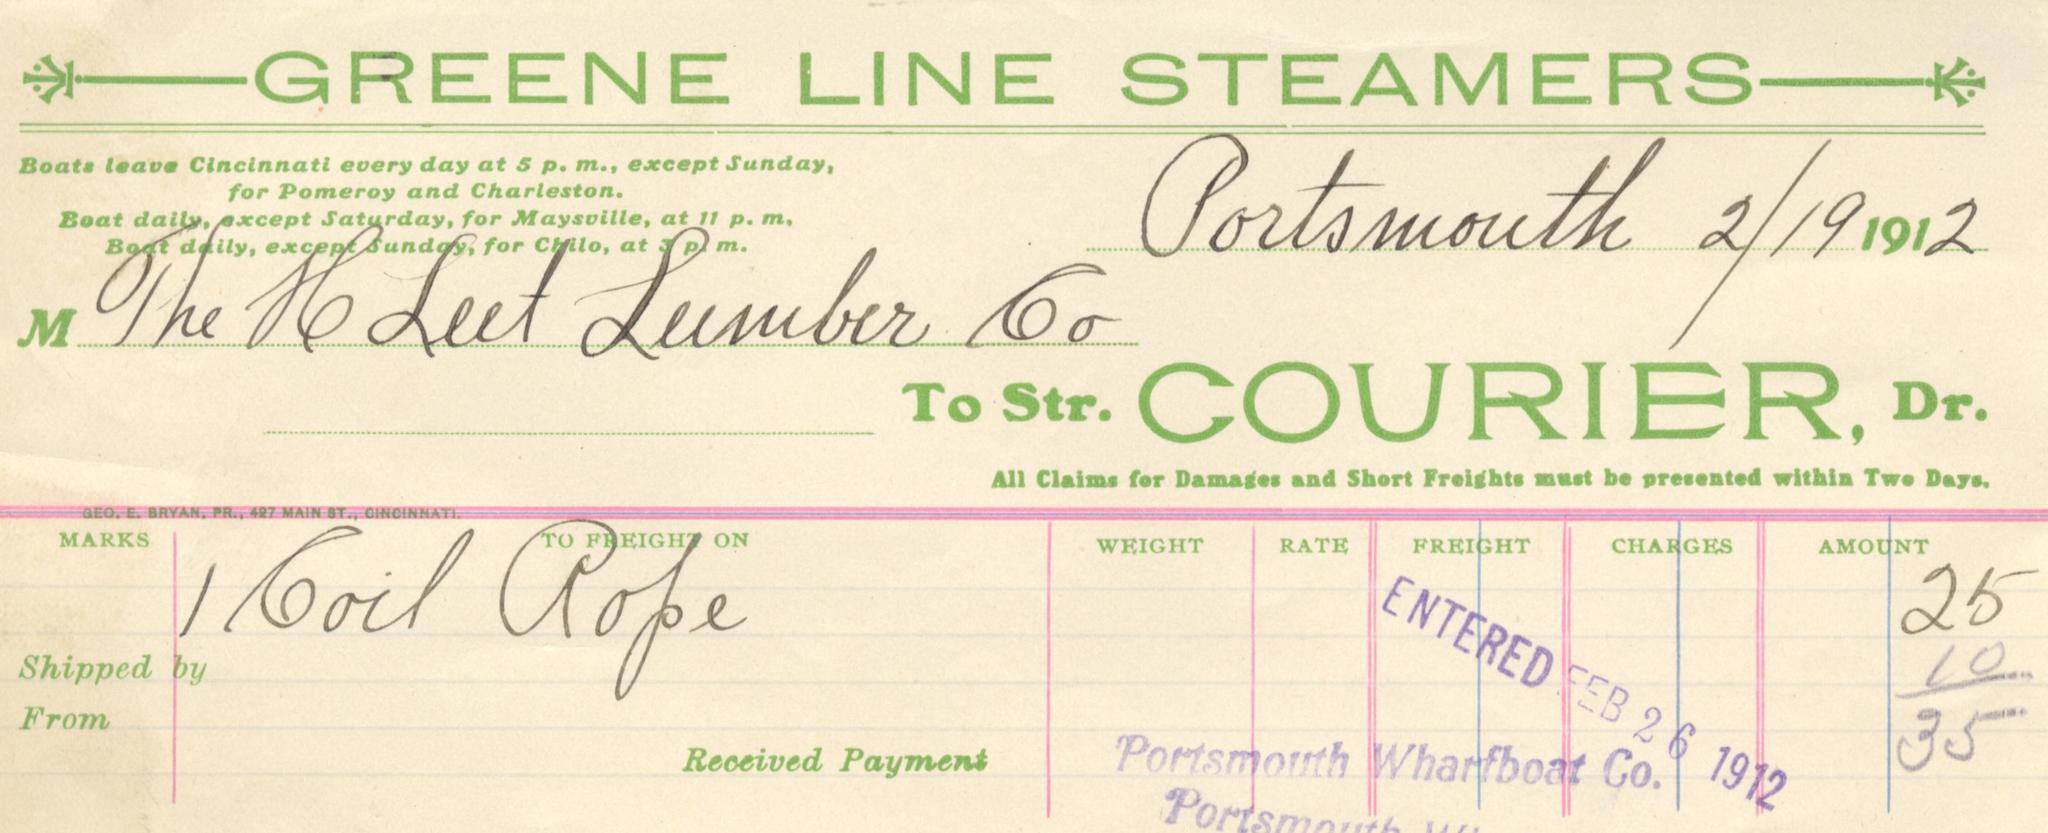 GREENE LINE STEAMERS
Boats leave Cincinnati every day at 5 p. m., except Sunday,
for Pomeroy and Charleston.
Boat daily, except Saturday, for Maysville, at 11 p. m.
Boat daily, except Sunday, for Chilo, at 3 p. m.
Portsmouth 2/19 1912
M The H Leet Lumber Co
To Str. COURIER, Dr.
All Claims for Damages and Short Freights must be presented within Two Days.
GEO. E. BRYAN, PR., 427 MAIN ST., CINCINNATI.
MARKS TO FREIGHT ON WEIGHT RATE FREIGHT CHARGES AMOUNT
1 Coil Rope 25
10
Shipped by
35
From
ENTERED FEB 26 1912
Received Payment Portsmouth Wharfboat Co.
Portsmouth